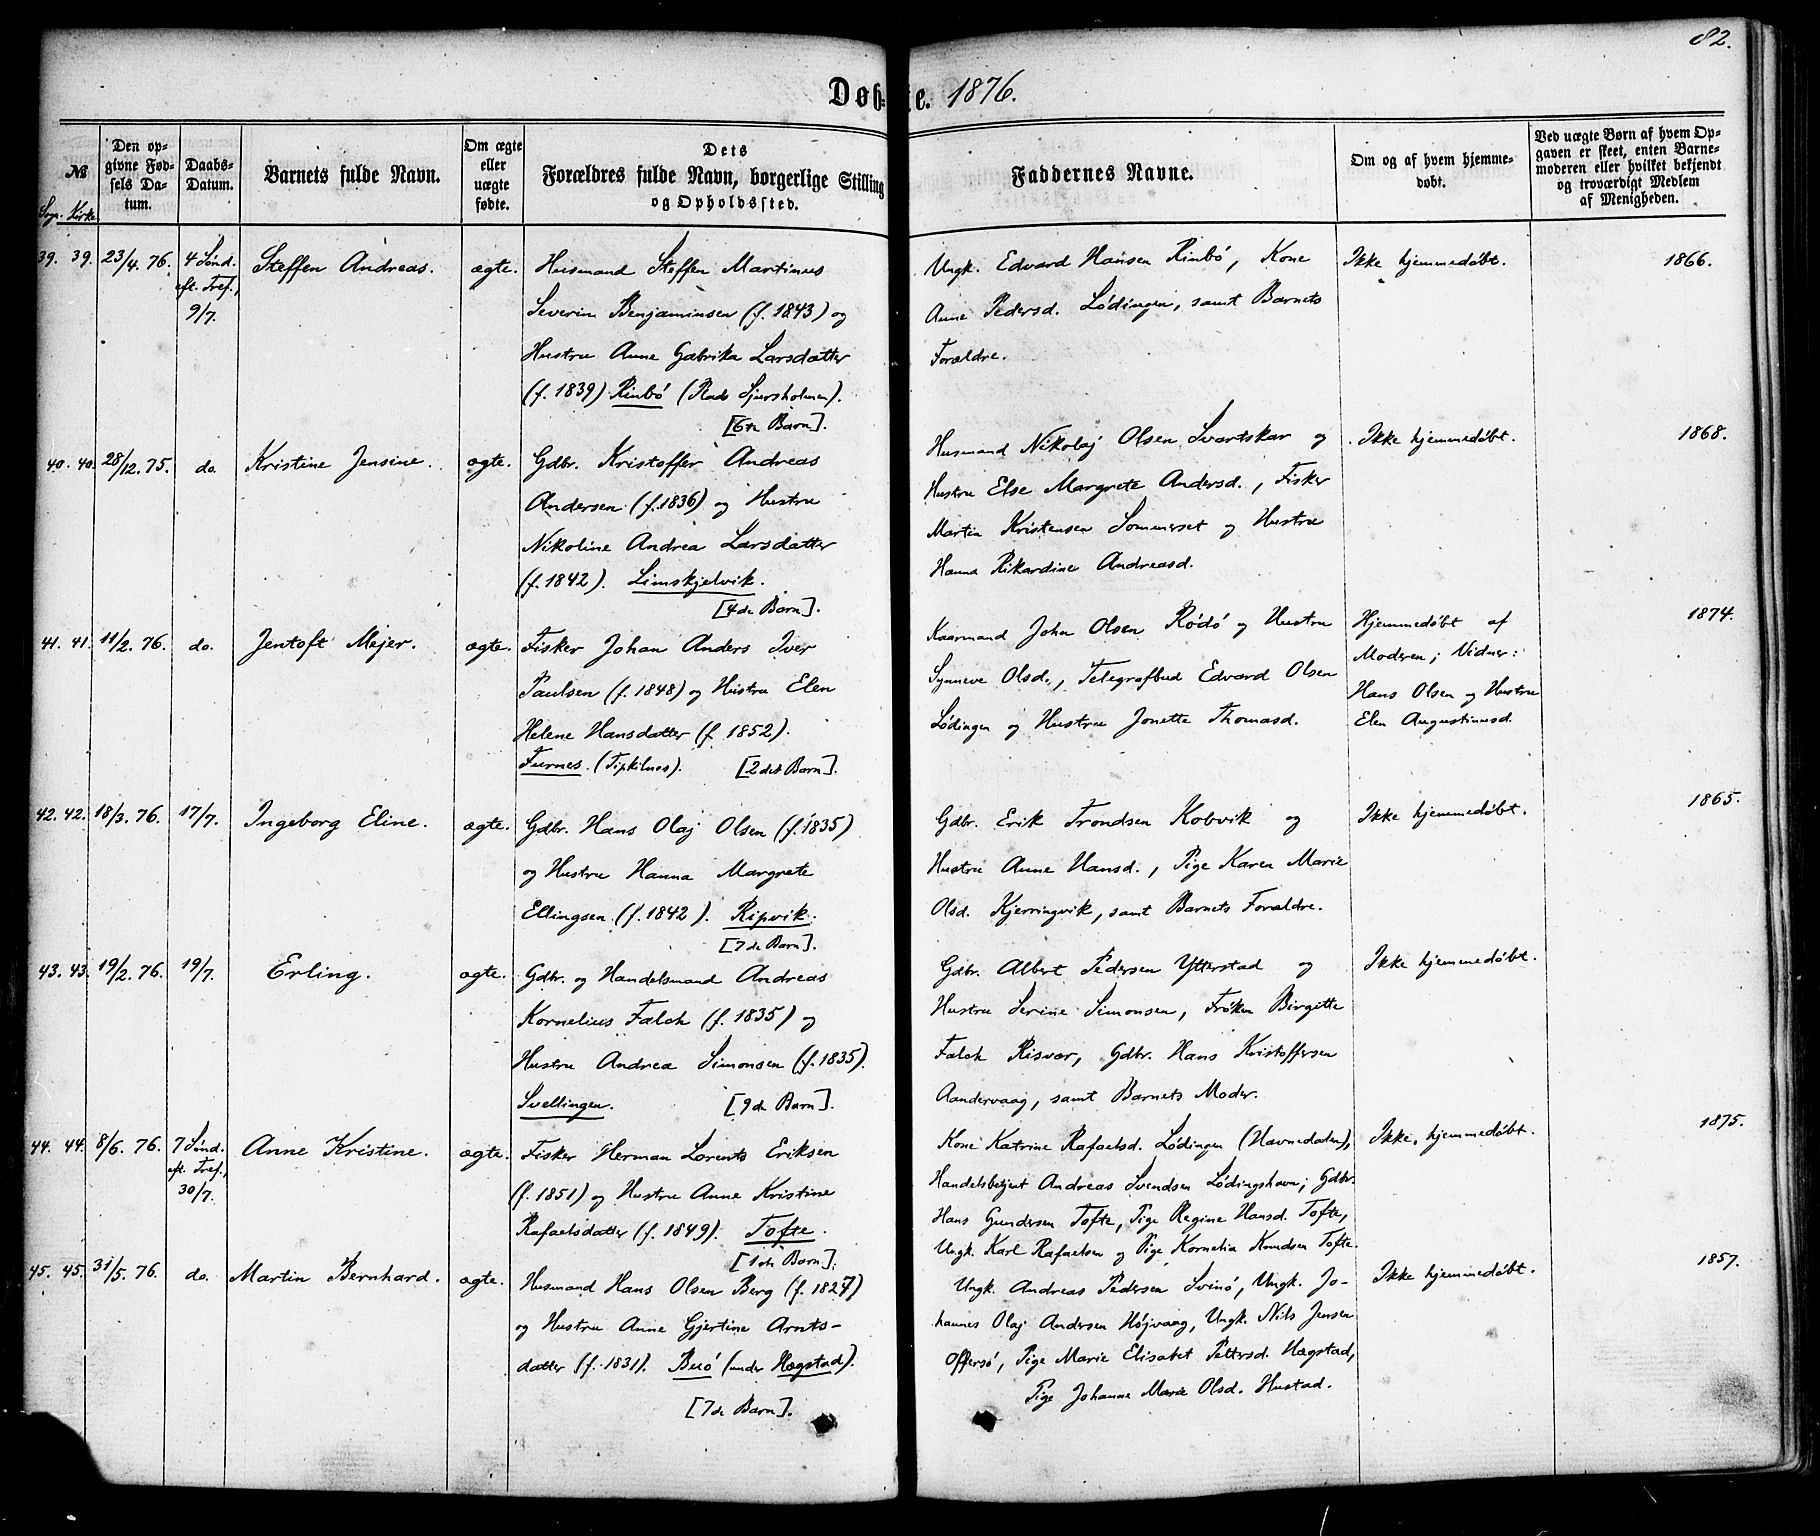 82.
Døbte. 1876.
№
Sogn. Kirke.
Den op-
givne Fød-
sels Da-
tum.
Daabs-
Datum.
Barnets fulde Navn.
Om ægte
eller
uægte
fødte.
Dets
Forældres fulde Navn, borgerlige Stilling
og Opholdssted.
Faddernes Navne.
Om og af hvem hjemme-
døbt.
Ved uægte Børn af hvem Op-
gaven er skeet, enten Barne-
moderen eller hvilket bekjendt
og troværdigt Medlem
af Menigheden.
39. 39. 23/4. 76. 4 Sønd.
eft. Tref.,
9/7.
Steffen Andreas. ægte.
Husmand Steffen Martinus
Severin Benjaminsen (f. 1843) og
Hustru Anne Gabrika Larsdatter
(f. 1839) Rinbö (Sjursholmen).
[6te Barn].
Ungk. Edvard Hansen Rinbö, Kone
Anne Pedersd. Lödingen, samt Barnets
Forældre.
Ikke hjemmedöbt.
1866.
40. 40. 28/12. 75. do. Kristine Jensine. ægte.
Gdbr. Kristoffer Andreas
Andersen (f. 1836) og Hustru
Nikoline Andrea Larsdatter
(f. 1842). Limskjelvik.
[4de Barn].
Husmand Nikolaj Olsen Svartskar og
Hustru Else Margrete Andersd., Fisker
Martin Kristensen Sommerset og Hustru
Hanna Rikardine Andreasd.
Ikke hjemmedöbt.
1868.
41. 41. 11/2. 76. do. Jentoft Mejer. ægte.
Fisker Johan Anders Iver
Paulsen (f. 1848) og Hustru Elen
Helene Hansdatter (f. 1852).
Furnes. (Tipkilnes). [2det Barn].
Kaarmand John Olsen Rödö og Hustru
Synneve Olsd., Telegrafbud Edvard Olsen
Lödingen og Hustru Jonette Thomasd.
Hjemmedöbt af
Moderen; Vidner:
Hans Olsen og Hustru
Elen Augustinusd.
1874.
42. 42. 18/3. 76. 17/7. Ingeborg Eline. ægte.
Gdbr. Hans Olaj Olsen (f. 1835)
og Hustru Hanna Margrete
Ellingsen (f. 1842). Ripvik.
[7de Barn].
Gdbr. Erik Trondsen Kobvik og
Hustru Anne Hansd., Pige Karen Marie
Olsd. Kjerringvik, samt Barnets Forældre.
Ikke hjemmedöbt.
1865.
43. 43. 19/2. 76. 19/7. Erling. ægte.
Gdbr. og Handelsmand Andreas
Kornelius Falch (f. 1835) og
Hustru Andrea Simonsen (f. 1835).
Svellingen. [9de Barn].
Gdbr. Albert Pedersen Ytterstad og
Hustru Serine Simonsen, Fröken Birgitte
Falch Risvær, Gdbr. Hans Kristoffersen
Aandervaag, samt Barnets Moder.
Ikke hjemmedöbt.
44. 44. 8/6. 76. 7 Sönd.
eft. Tref.,
30/7.
Anne Kristine. ægte.
Fisker Herman Lorents Eriksen
(f. 1851) og Hustru Anne Kristine
Rafaelsdatter (f. 1849). Tofte.
[1ste Barn].
Kone Katrine Rafaelsd. Lödingen (Havnedalen),
Handelsbetjent Andreas Svendsen Lödingshavn; Gdbr.
Hans Gundersen Tofte, Pige Regine Hansd. Tofte,
Ungk. Karl Rafaelsen og Pige Kornelia Knudsen Tofte.
Ikke hjemmedöbt.
1875.
45. 45. 31/5. 76. do. Martin Bernhard. ægte.
Husmand Hans Olsen Berg (f. 1827)
og Hustru Anne Gjertine Arnts-
datter (f. 1831). Buö (under Hægstad).
[7de Barn].
Ungk. Andreas Pedersen Svinö, Ungk. Jo-
hannes Olaj Andersen Höjvaag, Ungk. Nils Jensen
Offersö, Pige Marie Elisabet Pettersd. Hægstad,
Pige Johanne Marie Olsd. Hustad.
Ikke hjemmedöbt.
1857.